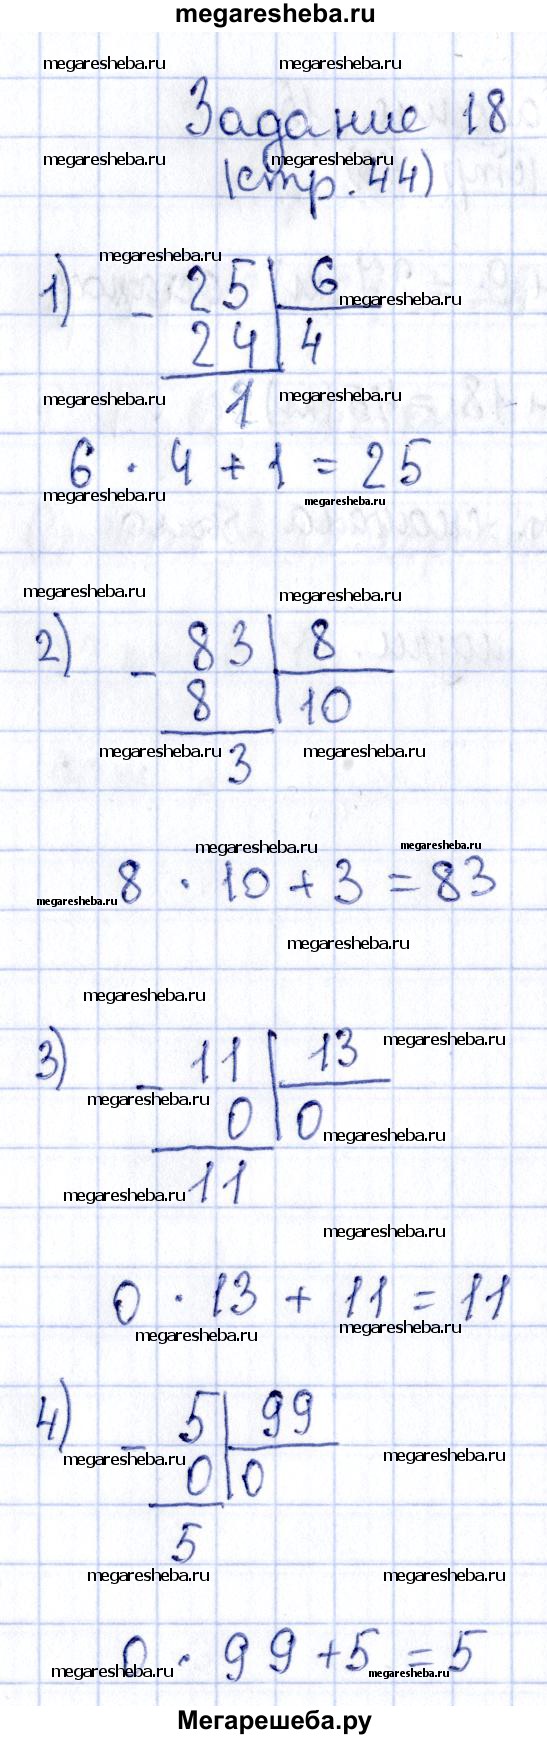 megaresheba.ru
megaresheba.ru megaresheba.ru
Задание 18
megaresheba.ru megaresheba.ru
(стр. 44)
megaresheba.ru
1) - 25 6
megaresheba.ru
24 4
megaresheba.ru megaresheba.ru
1
6 · 4 + 1 = 25
megaresheba.ru megaresheba.ru
megaresheba.ru megaresheba.ru
2) - 83 8
8 10
megaresheba.ru megaresheba.ru
3
megaresheba.ru megaresheba.ru
8 · 10 + 3 = 83
megaresheba.ru
megaresheba.ru
megaresheba.ru
megaresheba.ru
3) - 11 13
megaresheba.ru
0 0
megaresheba.ru
11
megaresheba.ru
megaresheba.ru
0 · 13 + 11 = 11
megaresheba.ru megaresheba.ru
4) - 5 99
megaresheba.ru megaresheba.ru
0 0
5
megaresheba.ru megaresheba.ru
0 · 99 + 5 = 5
megaresheba.ru megaresheba.ru
Мегарешеба.ру